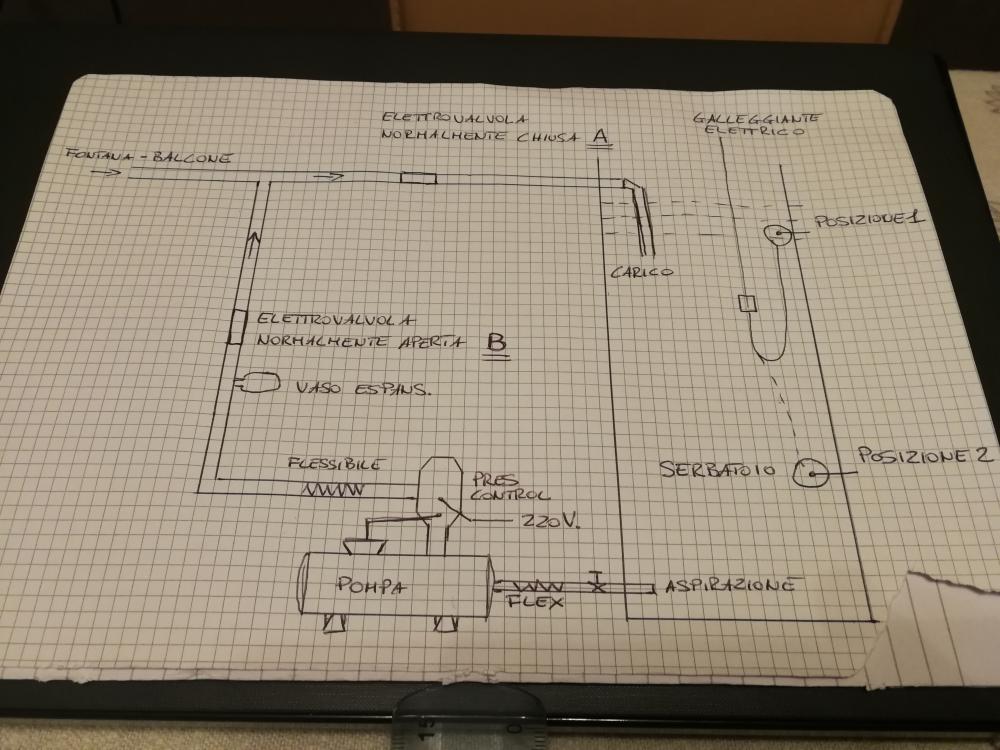 ELETTROVALVOLA
NORMALMENTE CHIUSA A
GALLEGGIANTE
ELETTRICO
FONTANA - BALCONE
POSIZIONE 1
CARICO
ELETTROVALVOLA
NORMALMENTE APERTA B
VASO ESPANS.
FLESSIBILE
PRES
CONTROL
220V.
SERBATOIO
POSIZIONE 2
POMPA
FLEX
ASPIRAZIONE
15
0